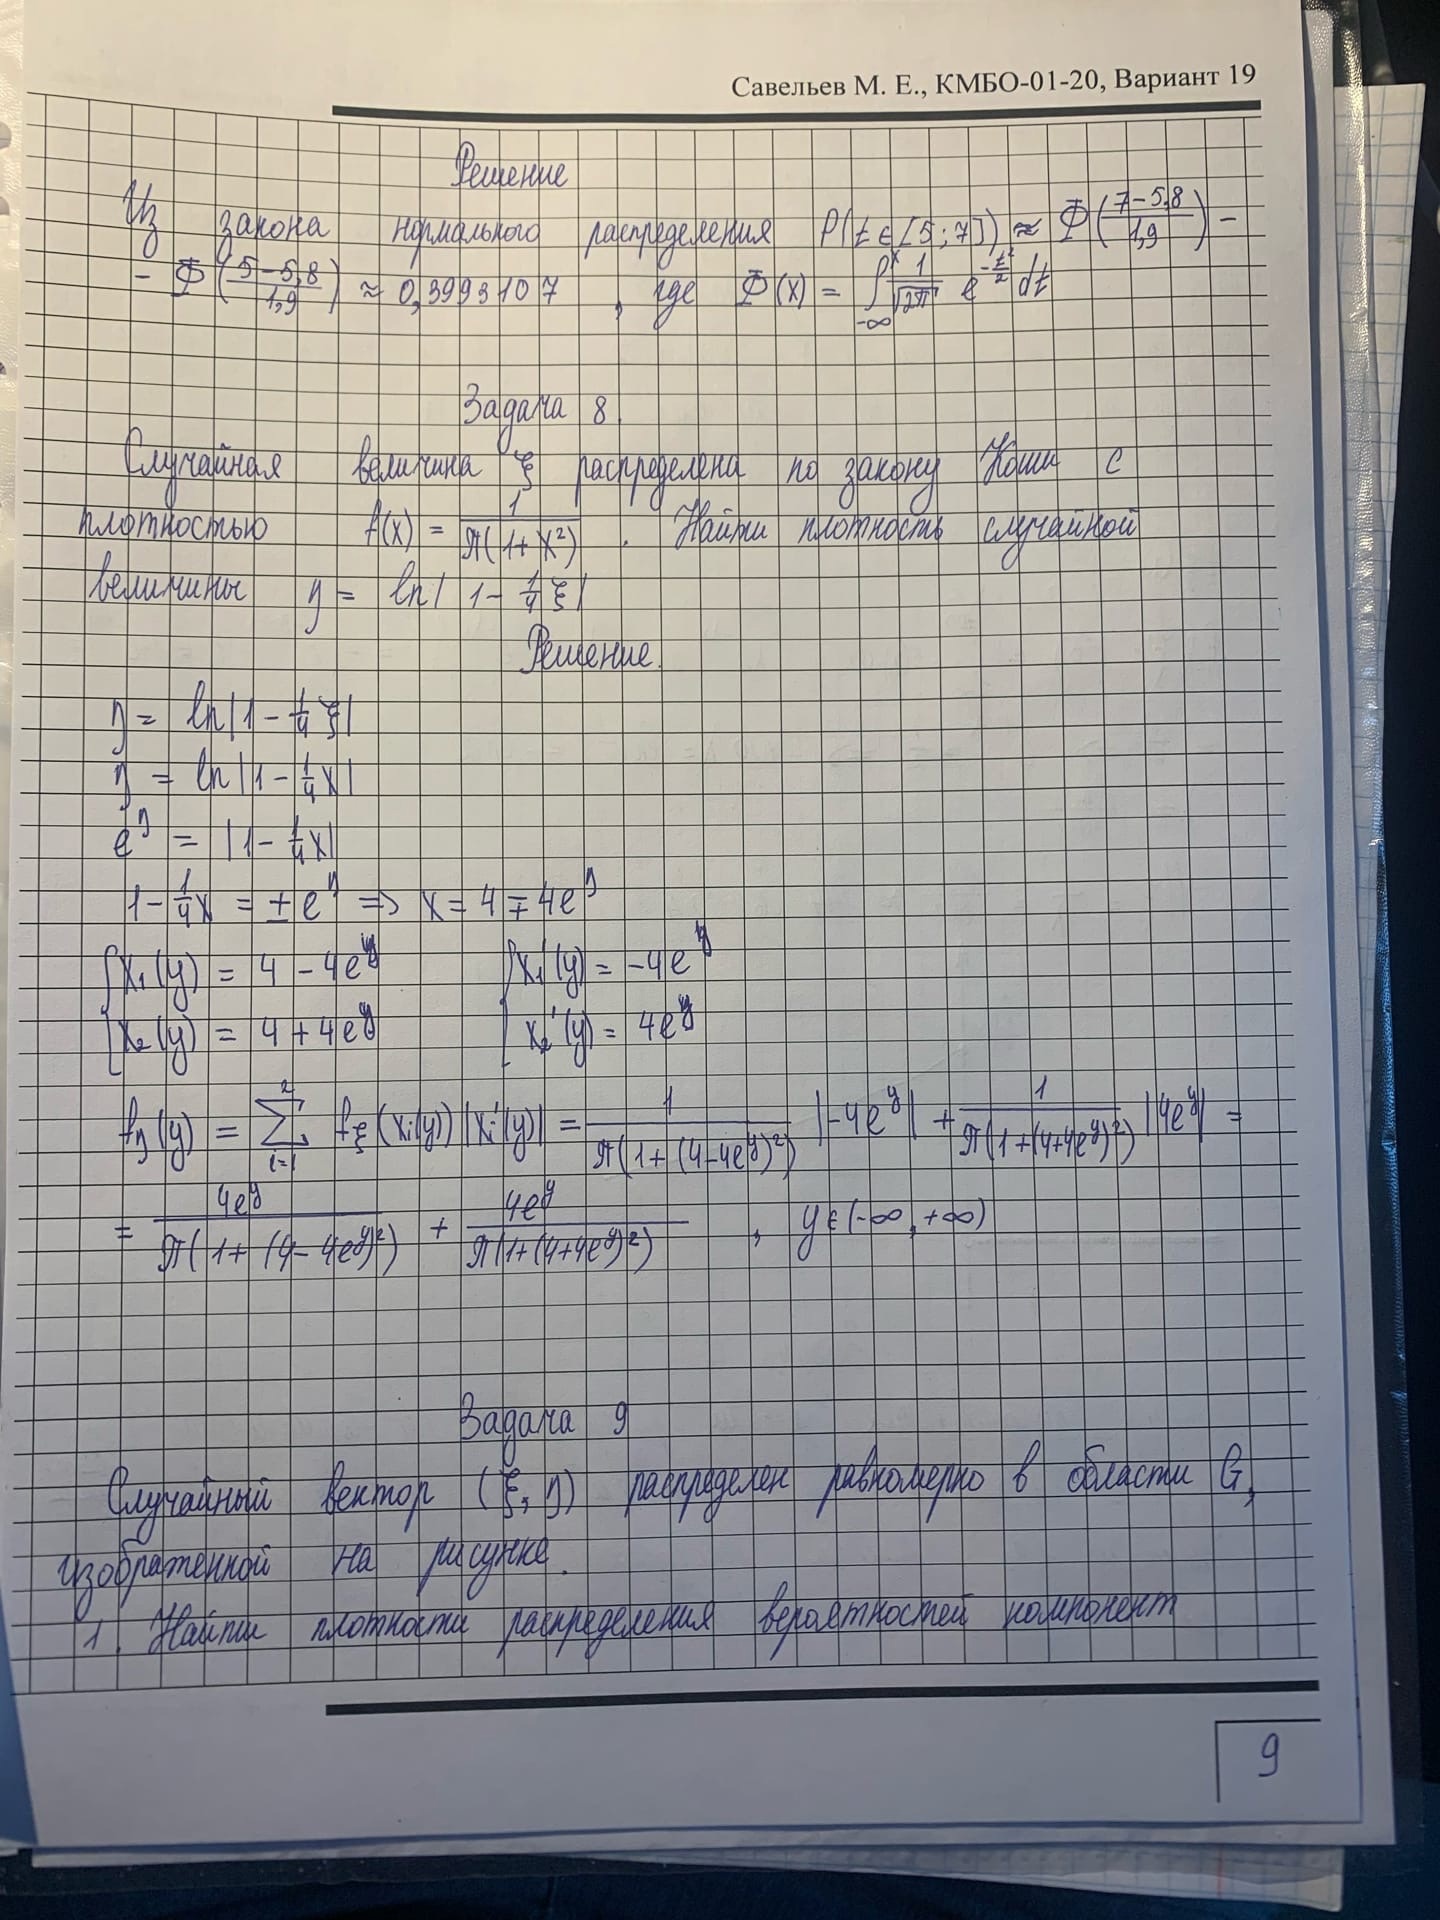 Савельев М. Е., КМБО-01-20, Вариант 19
Решение
Из закона нормального распределения P(t ∈ [5; 7]) ≈ Ф((7-5,8)/1,9) -
- Ф((5-5,8)/1,9) ≈ 0,3993107 , где Ф(x) = ∫_{-∞}^{x} 1/√(2π) e^{-t²/2} dt
Задача 8.
Случайная величина ξ распределена по закону Коши с
плотностью f(x) = 1/(π(1+x²)) . Найти плотность случайной
величины η = ln|1 - 1/4 ξ|
Решение.
η = ln|1 - 1/4 ξ|
η = ln|1 - 1/4 x|
e^η = |1 - 1/4 x|
1 - 1/4 x = ± e^η => x = 4 ∓ 4e^η
{ x₁(y) = 4 - 4e^y { x₁'(y) = -4e^y
{ x₂(y) = 4 + 4e^y { x₂'(y) = 4e^y
f_η(y) = Σ_{i=1}^{2} f_ξ(x_i(y)) |x_i'(y)| = 1/(π(1+(4-4e^y)²)) |-4e^y| + 1/(π(1+(4+4e^y)²)) |4e^y| =
= 4e^y/(π(1+(4-4e^y)²)) + 4e^y/(π(1+(4+4e^y)²)) , y ∈ (-∞, +∞)
Задача 9
Случайный вектор (ξ, η) распределен равномерно в области G,
изображенной на рисунке.
1. Найти плотности распределения вероятностей компонент
9